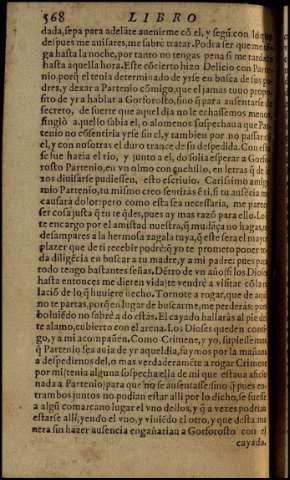 568 LIBRO
dada, sepa para adelāte auenirme cō el, y segū con lo que
despues me auisares, me sabrè tratar. Podra ser que me
ga hasta la noche, por tanto no tengas pena si me tardare
hasta aquella hora. Este cōcierto hizo Delicio con Parte-
nio, porq̄ el tenia determinado de yrse en busca de sus pa
dres, y dexar a Partenio cōmigo, que el jamas tuuo propo
sito de yr a hablar a Gorforosto, sino q̄ para ausentarse de
secreto, de suerte que aquel dia no le echassemos menos,
fingiò aquello sabia el, o alomenos sospechaua que Par
tenio no cōsentiria yrse sin el, y tambien por no passar
el, y con nosotras el duro trance de su despedida. Con es
se fue hazia el rio, y junto a el, do solia esperar a Gorfo
rosto Partenio, en vn olmo con cuchillo, en letras q̄ de le
xos diuisarse pudiessen, esto escriuio. Carissimo amigo
mio Partenio, tu mismo creo sentiràs ē ti, si tu ausēcia me
causarà dolor: pero como esta sea necessaria, me parece
ser cosa justa q̄ tu te q̄des, pues ay mas razō para ello. Lo q̄
te encargo por el amistad nuestra, q̄ mudāça no hagas, ni
desampares a la hermosa zagala tuya, q̄ este sera el mayor
plazer que de ti recebir podrè: q̄ yo te prometo poner to
da diligēcia en buscar a tu madre, y a mi padre: pues para
todo tengo bastantes señas. Dētro de vn año (si los Dioses
hasta entonces me dieren vida) te vendrè a visitar cō la re
laciō de lo q̄ huuiere hecho. Tornote a rogar, que de aqui
no te partas, porq̄ en lugar de buscarme, me perderàs: por
boluiēdo no sabrè a do estàs. El cayado hallaràs al pie des
te alamo, cubierto con el arena. Los Dioses queden conti
go, y a mi acompañen. Como Crimene, y yo, supiessemos
q̄ Partenio se auia de yr aquel dia, fuymos por la mañana
a despedirnos del, o mas verdaderamēte a rogar Crimene
por mi (tenia alguna sospecha ella de mi que estaua aficio
nada a Partenio) para que no se ausentasse: sino q̄ pues en
trambos juntos no podian estar alli por lo dicho, se fuesse
a algū comarcano lugar el vno dellos, y q̄ a vezes podrian
estarse alli, yendo el vno, y viniēdo el otro, y que desta ma
nera sin hazer ausencia engañarian a Gorforosto con el
cayada.